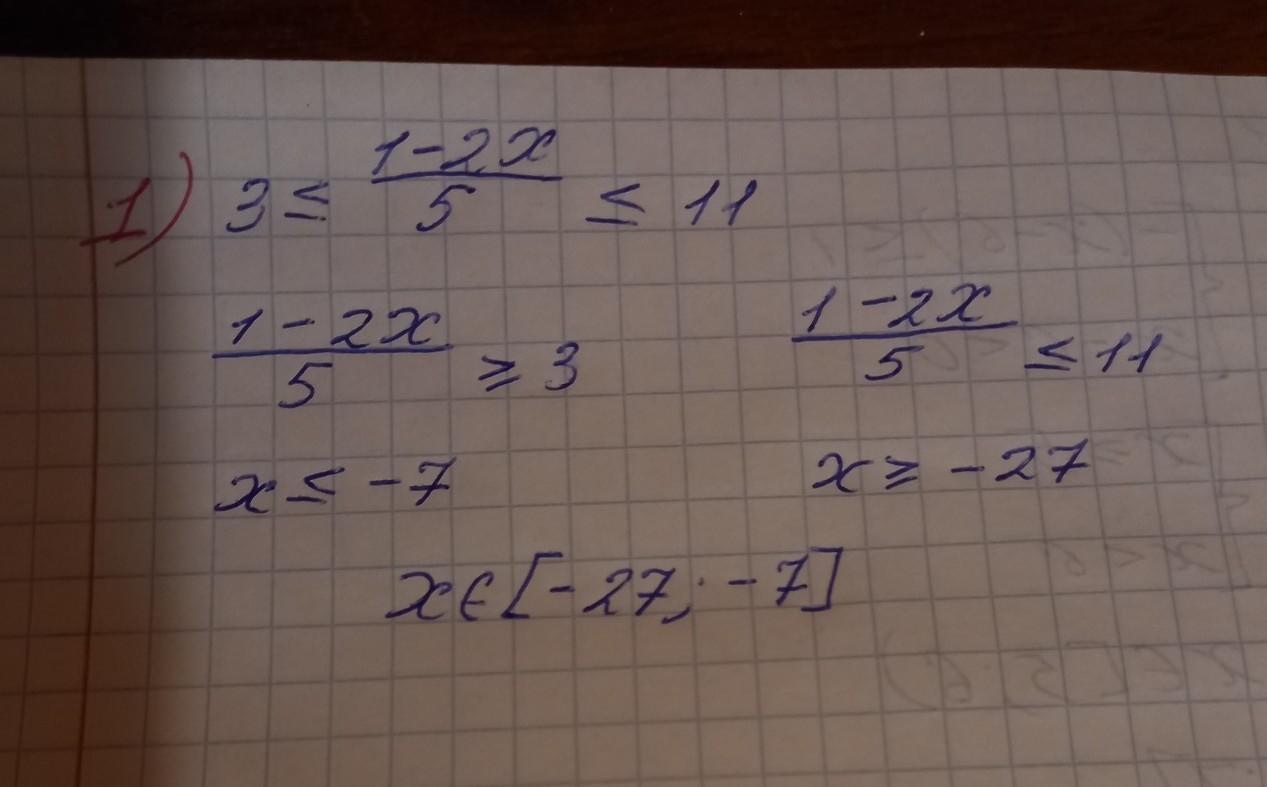 1) 3 ≤ (1-2x)/5 ≤ 11
(1-2x)/5 ≥ 3    (1-2x)/5 ≤ 11
x ≤ -7    x ≥ -27
x ∈ [-27; -7]